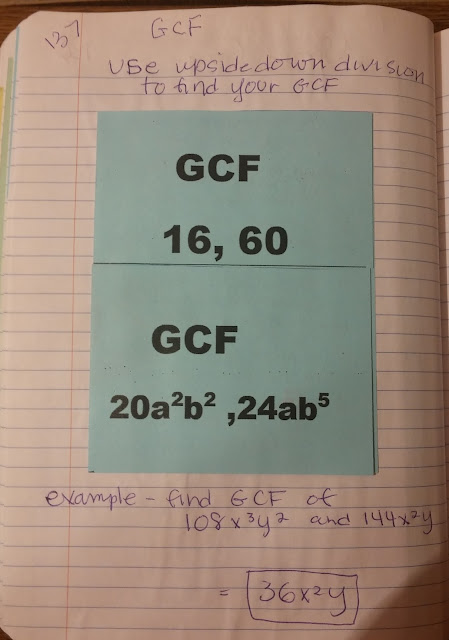 137
GCF
Use upside down division
to find your GCF
GCF
16, 60
GCF
20a²b² ,24ab⁵
example - find GCF of
108x³y² and 144x²y
= 36x²y